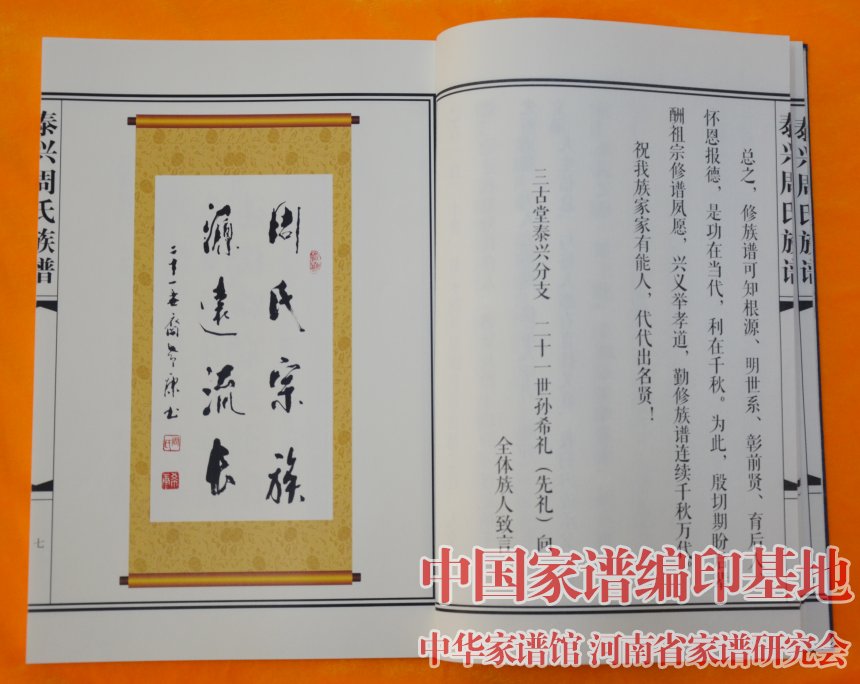 泰兴周氏族谱
总之，修族谱可知根源、明世系、彰前贤、育后人
怀恩报德，是功在当代，利在千秋。为此，殷切期盼
酬祖宗修谱夙愿，兴义举孝道，勤修族谱连续千秋万代
祝我族家家有能人，代代出名贤！
三古堂泰兴分支 二十一世孙希礼（先礼）向
全体族人致言
周氏宗族
源远流长
二十一世裔
书
泰兴周氏族谱
七
中国家谱编印基地
中华家谱馆 河南省家谱研究会